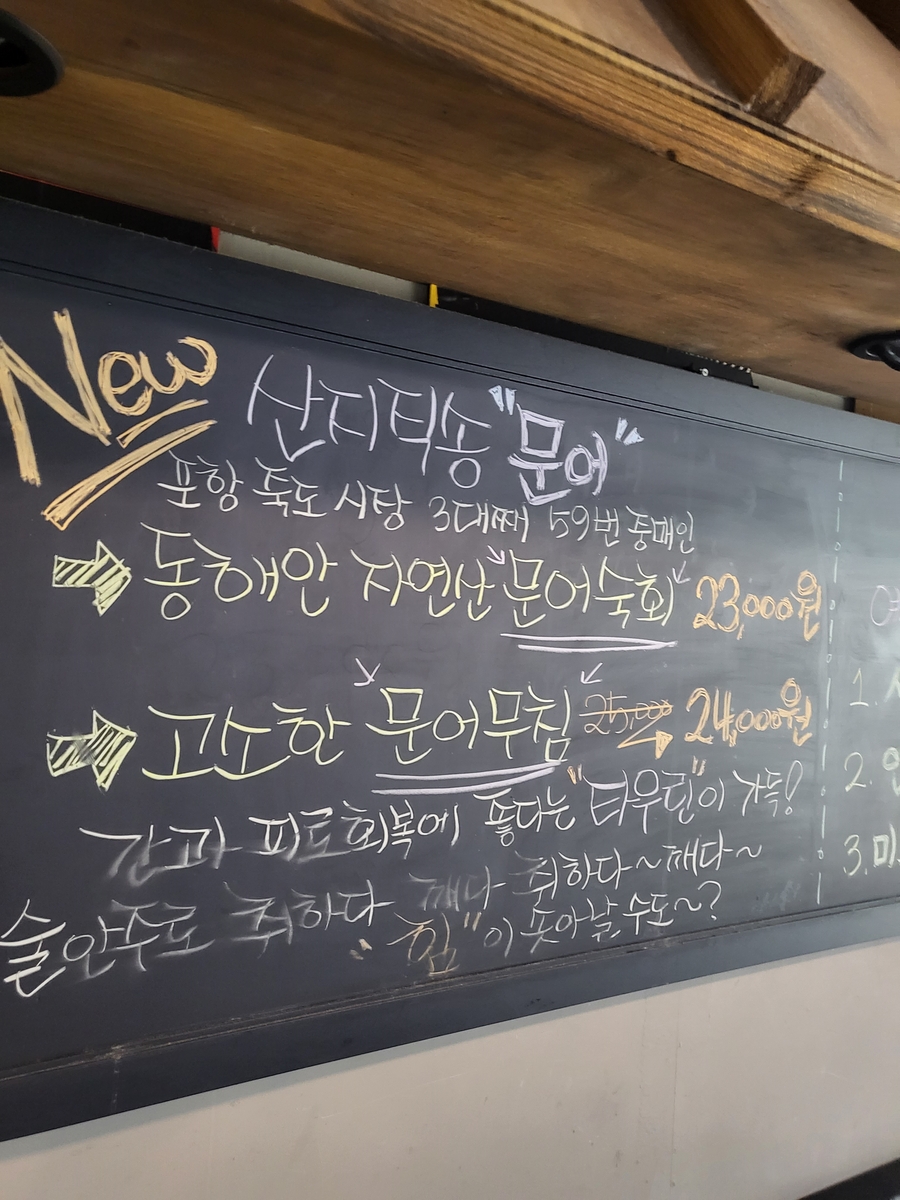 New 산지직송 "문어"
포항 죽도 시장 3대째 59번 중매인
동해안 자연산 "문어숙회" 23,000원
고소한 문어무침 25,000 24,000원
간과 피로회복에 좋다는 "타우린"이 가득!
술안주로 취하다 깨다 취하다~깨다~
"힘"이 솟아날 수도~?
1.
2.
3. 미